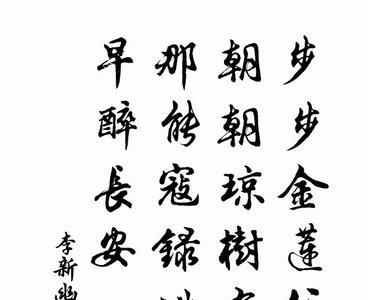 步步金蓮
朝朝琼樹
那能寇録
早醉長安
李新